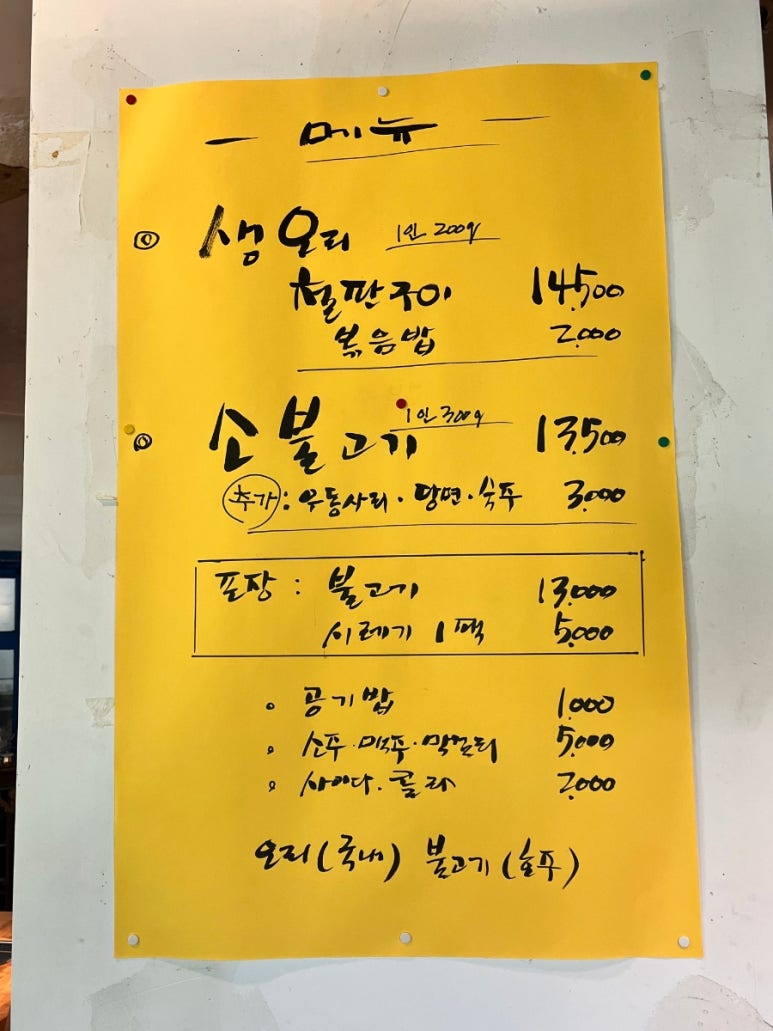 — 메뉴 —
◎ 생오리 1인 200g
철판구이 14,500
볶음밥 2,000
◎ 소불고기 1인 300g 13,500
추가 : 우동사리 · 당면 · 쑥주 3,000
포장 : 불고기 13,000
시레기 1팩 5,000
∘ 공기밥 1,000
∘ 소주 · 맥주 · 막걸리 5,000
∘ 사이다 · 콜라 2,000
오리(국내) 불고기(호주)